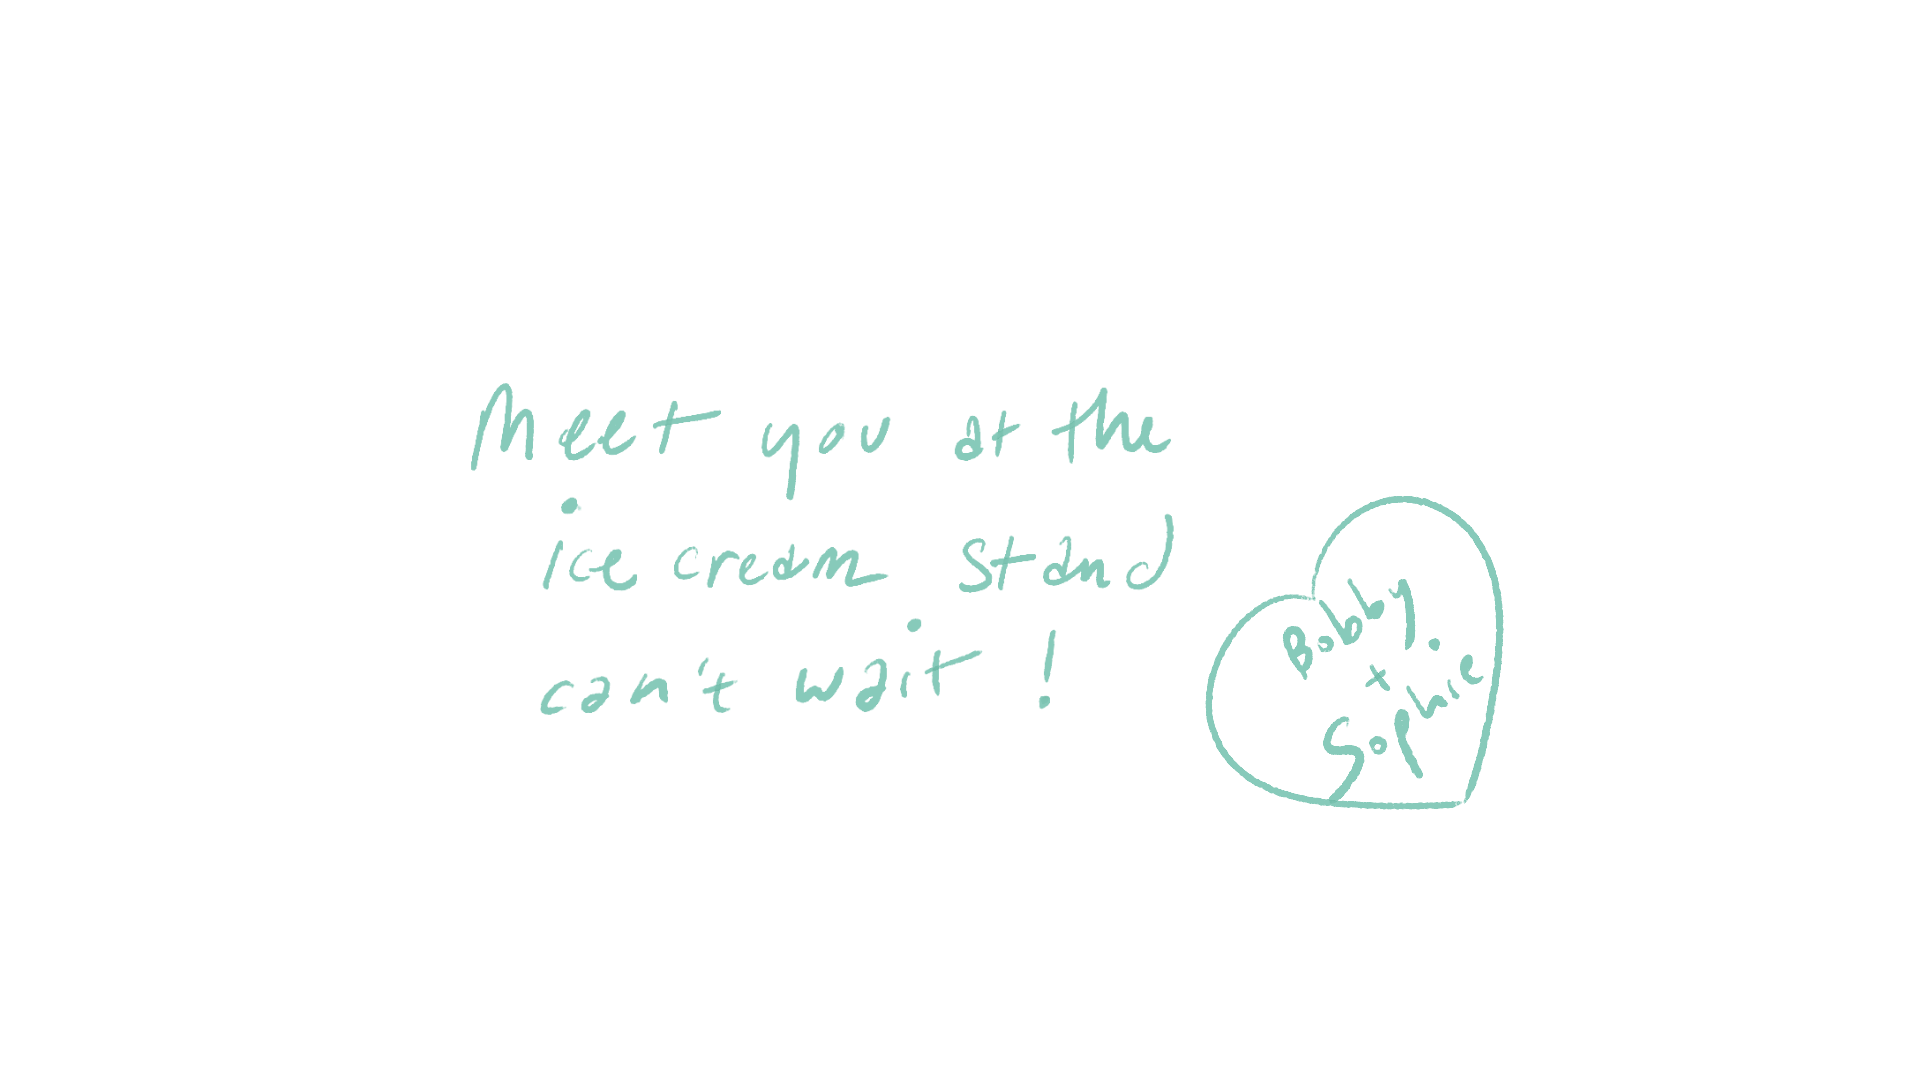 Meet you at the
ice cream stand
can't wait !
Bobby
x
Sophie